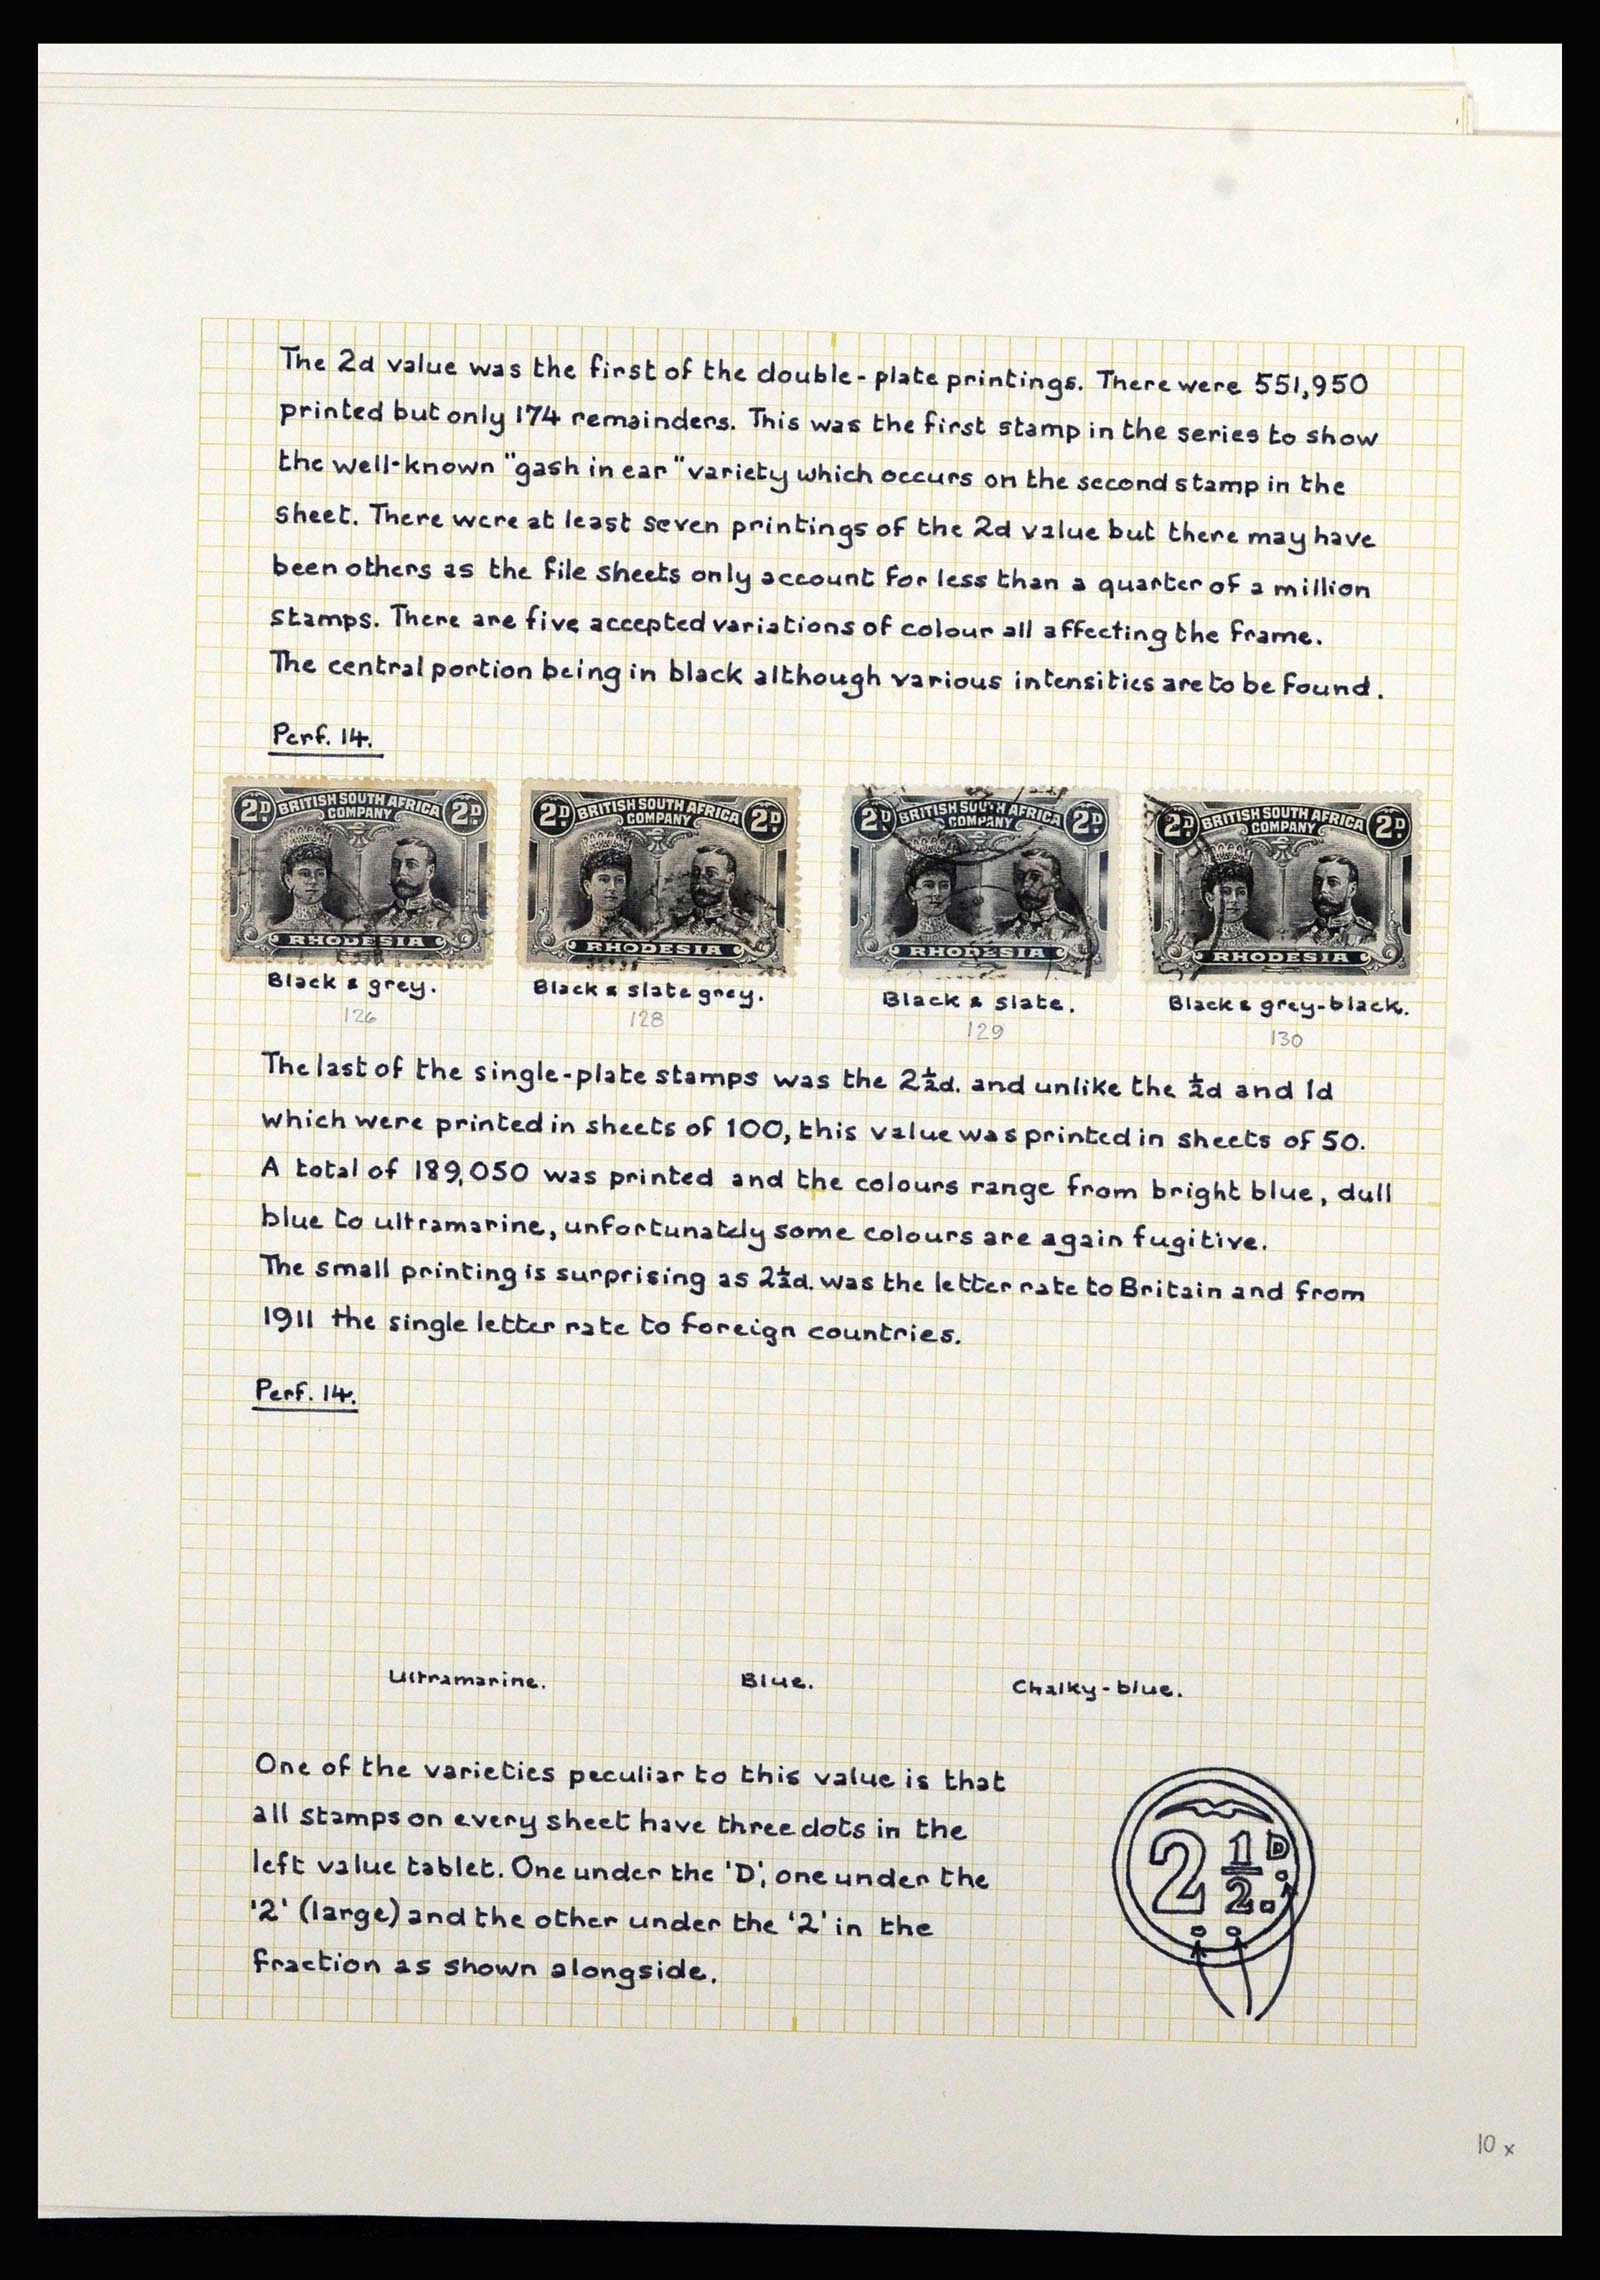 The 2d value was the first of the double-plate printings. There were 551,950
printed but only 174 remainders. This was the first stamp in the series to show
the well-known "gash in ear" variety which occurs on the second stamp in the
sheet. There were at least seven printings of the 2d value but there may have
been others as the file sheets only account for less than a quarter of a million
stamps. There are five accepted variations of colour all affecting the frame.
The central portion being in black although various intensities are to be found.
Perf. 14.
2D. BRITISH SOUTH AFRICA COMPANY 2D.
RHODESIA
2D. BRITISH SOUTH AFRICA COMPANY 2D.
RHODESIA
2D. BRITISH SOUTH AFRICA COMPANY 2D.
RHODESIA
2D. BRITISH SOUTH AFRICA COMPANY 2D.
RHODESIA
Black & grey. Black & slate grey. Black & slate. Black & grey-black.
126 128 129 130
The last of the single-plate stamps was the 2½d. and unlike the ½d and 1d
which were printed in sheets of 100, this value was printed in sheets of 50.
A total of 189,050 was printed and the colours range from bright blue, dull
blue to ultramarine, unfortunately some colours are again fugitive.
The small printing is surprising as 2½d. was the letter rate to Britain and from
1911 the single letter rate to foreign countries.
Perf. 14.
Ultramarine. Blue. Chalky-blue.
One of the varieties peculiar to this value is that
all stamps on every sheet have three dots in the
left value tablet. One under the 'D', one under the
'2' (large) and the other under the '2' in the
fraction as shown alongside.
2½D.
10 x